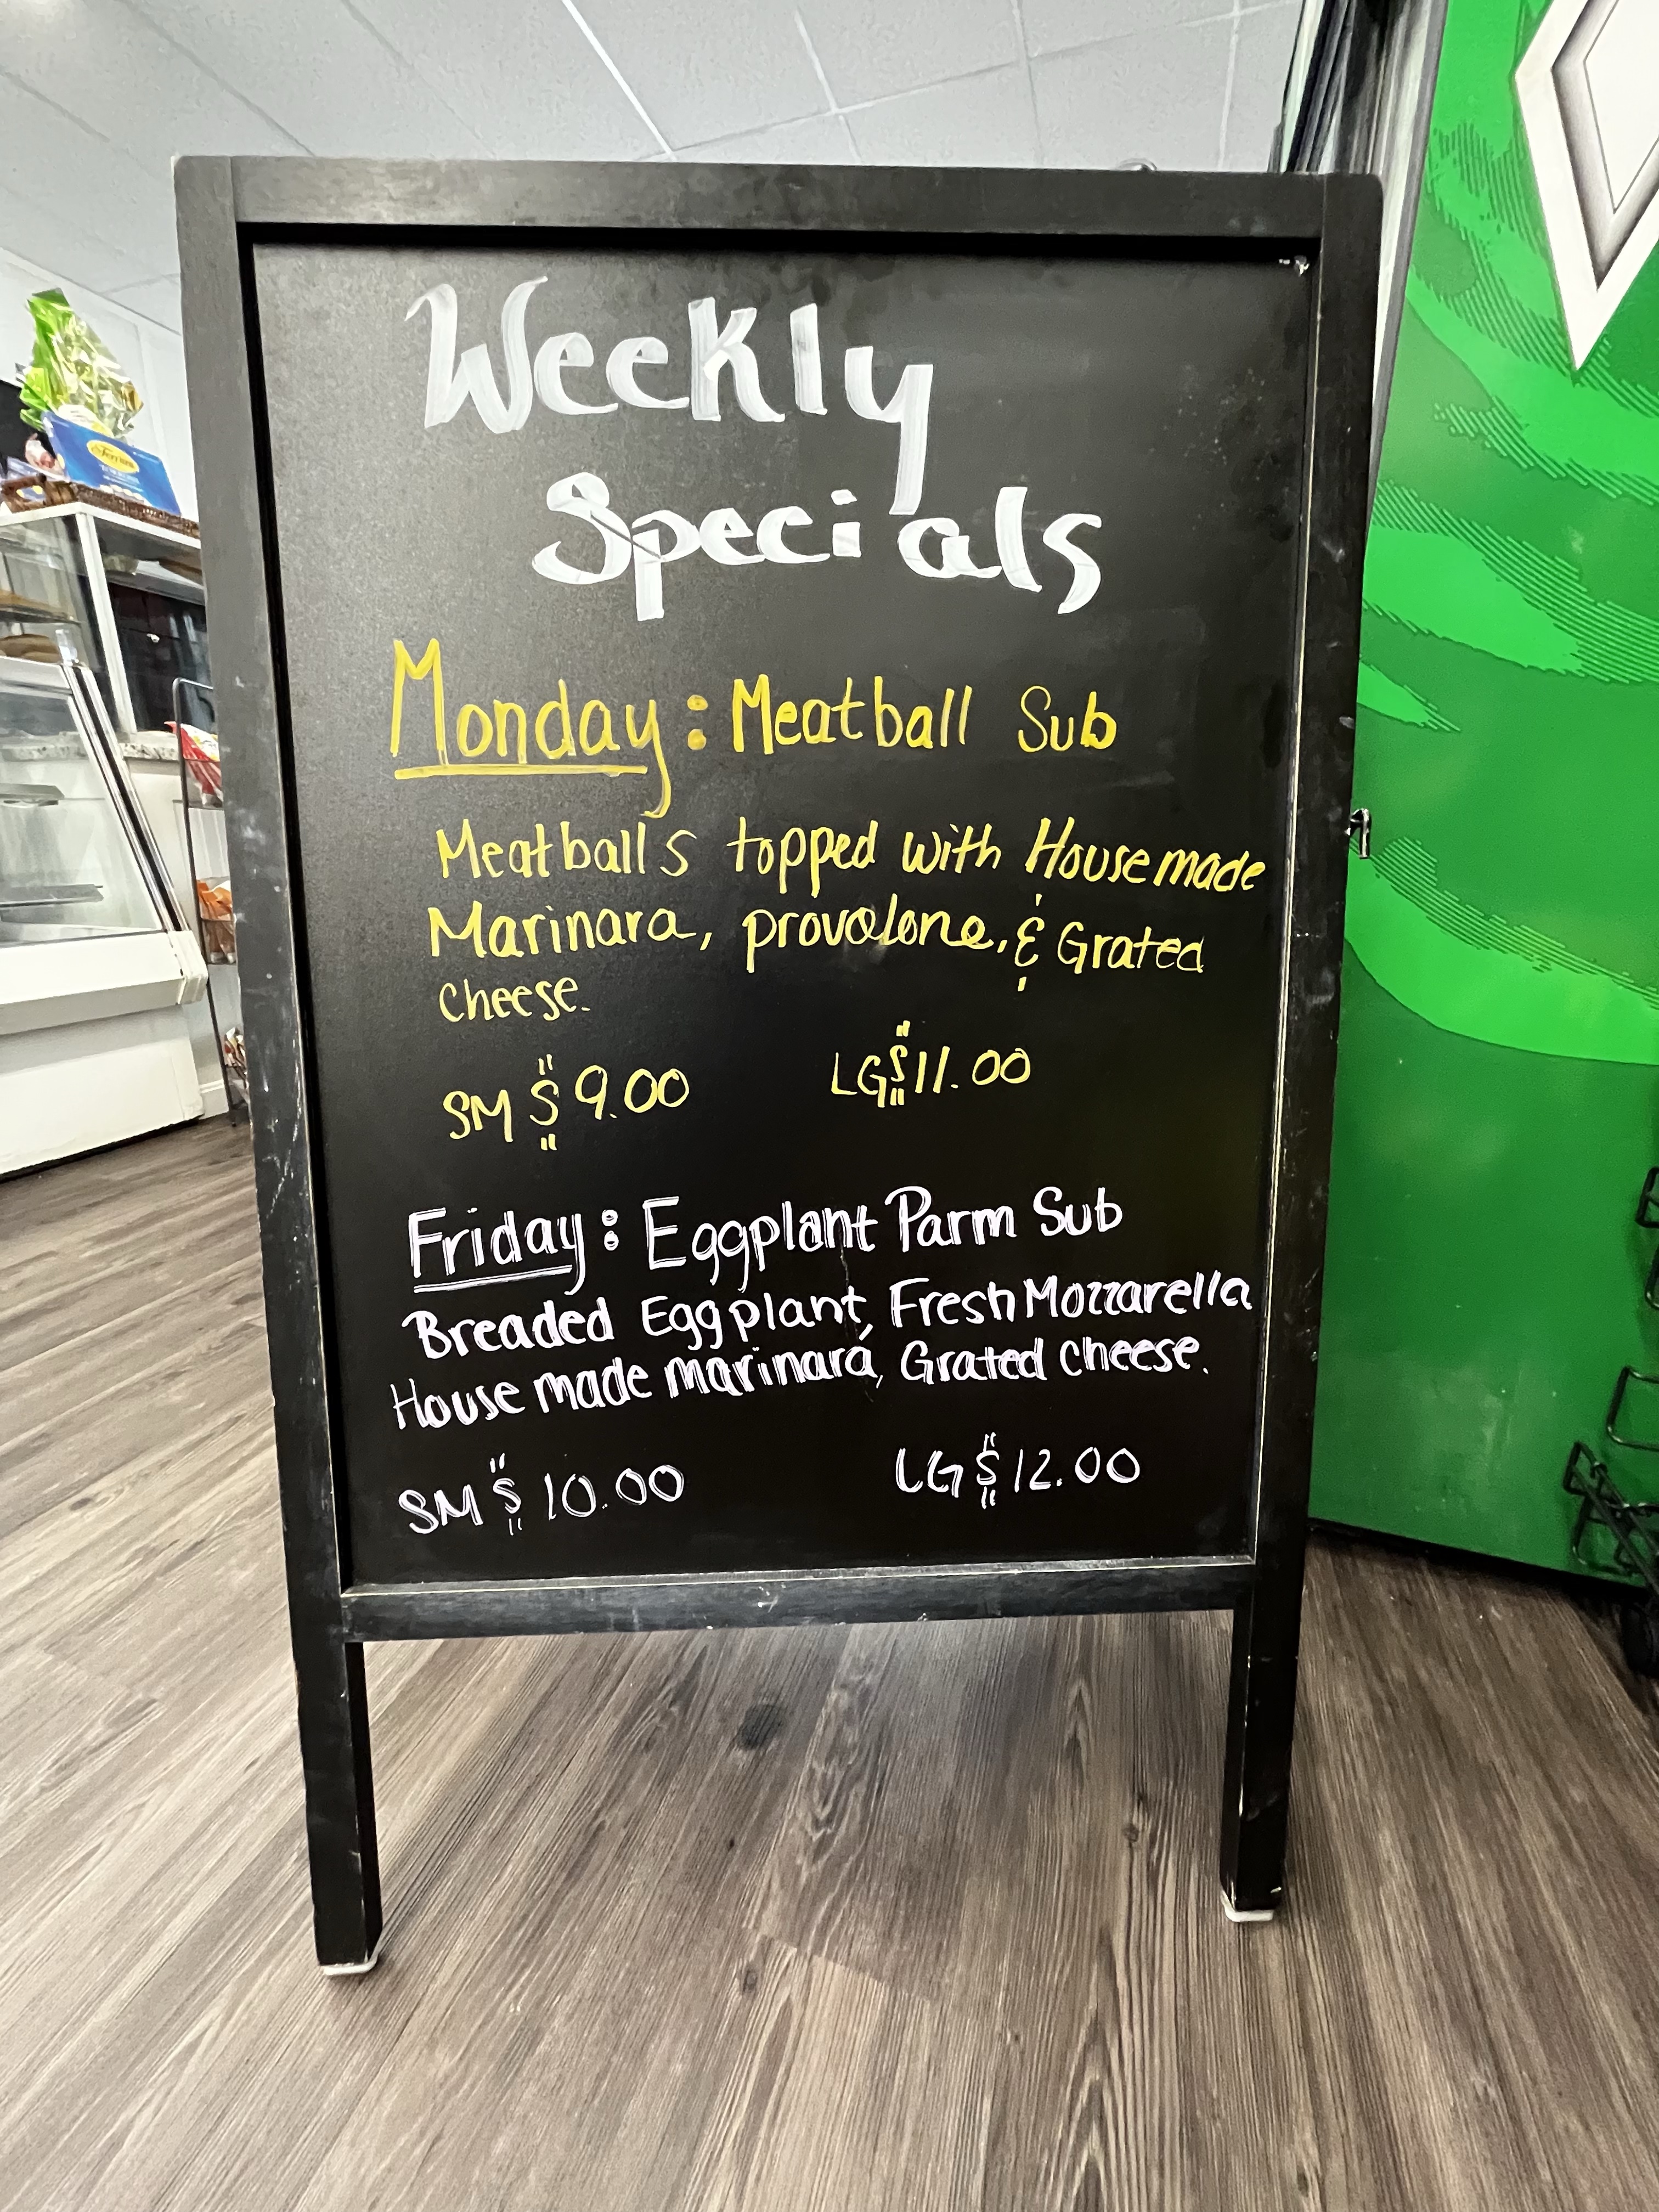 Weekly
Specials
Monday: Meatball Sub
Meatballs topped with Housemade
Marinara, provolone, & Grated
cheese.
SM $ 9.00 LG $ 11.00
Friday: Eggplant Parm Sub
Breaded Eggplant, Fresh Mozzarella
House made marinara, Grated cheese.
SM $ 10.00 LG $ 12.00